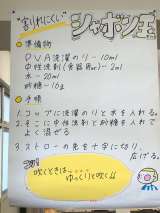 "割れにくい"
シャボン玉
● 準備物
PVA洗濯のり-10ml
中性洗剤(食器用or)-2ml
水-20ml
砂糖-10g
● 手順
1.コップに洗濯のりと水を入れる。
2.そこに中性洗剤と砂糖を入れて
よく混ぜる
3.ストローの先を十字に切り、
広げる。
吹くときは
ゆっくりと吹く!!